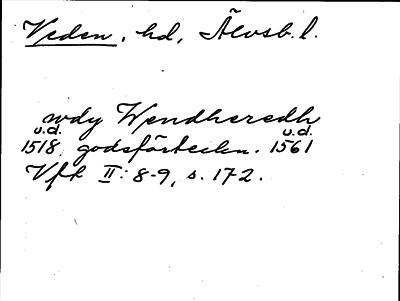 Veden, hd, Älvsb. l.
wdy Wendheredh
u.d. u.d.
1518, godsförteckn. 1561
Vft II: 8-9, s. 172.